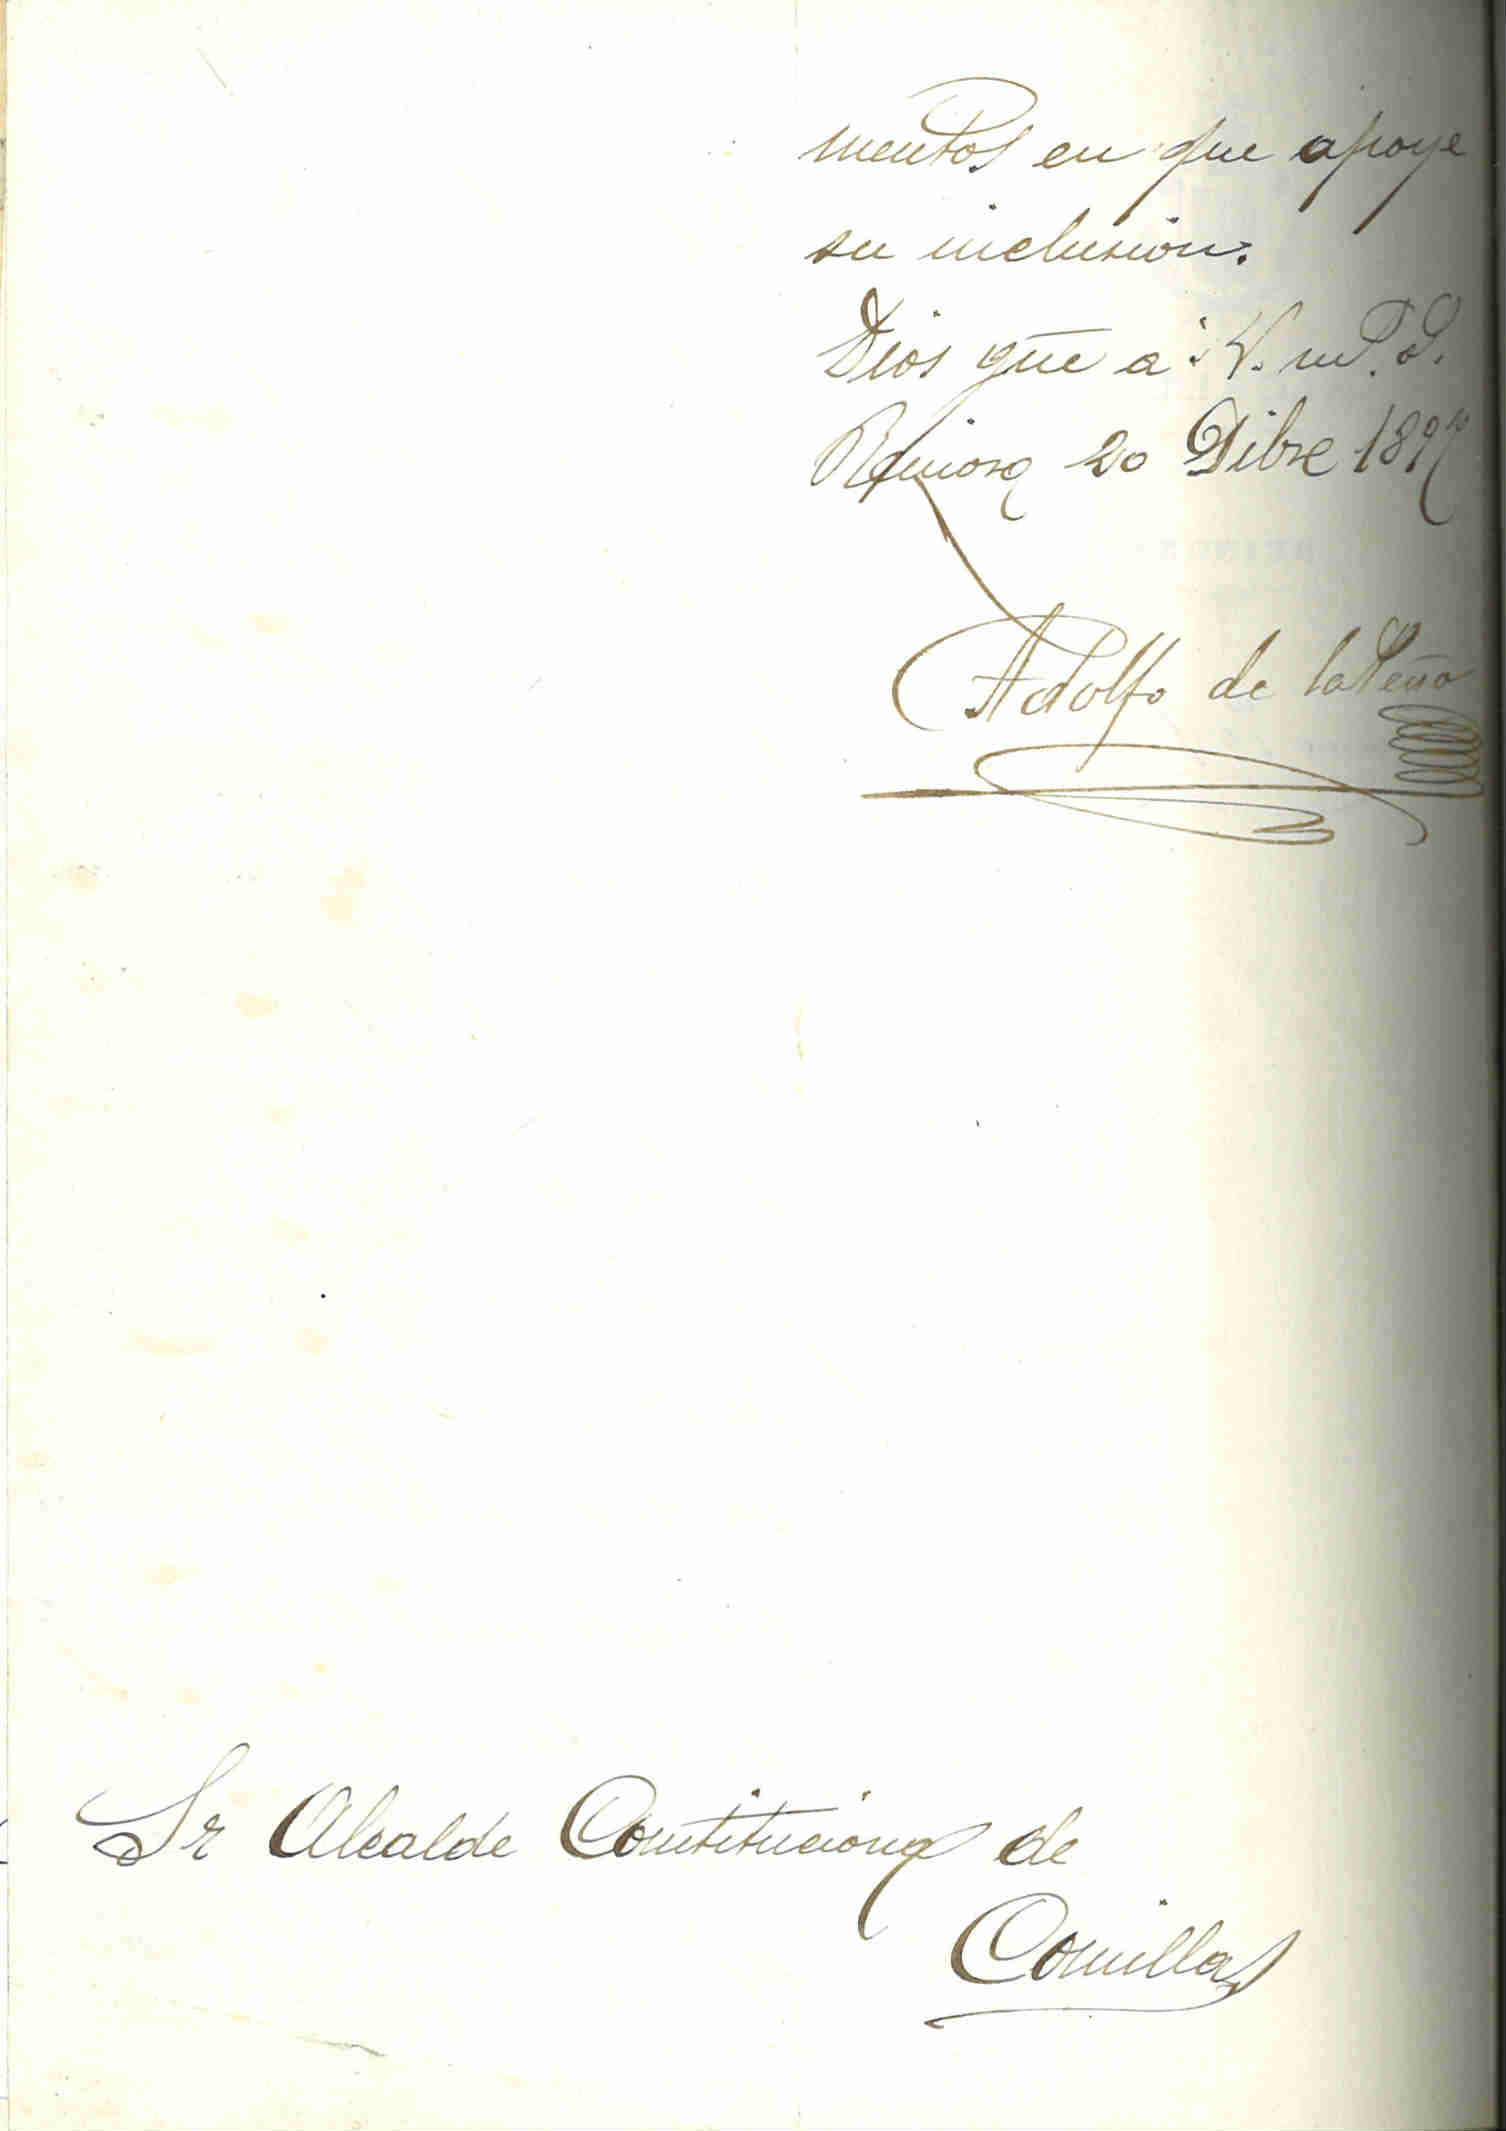 mentos en que apoye
su inclusión.
Dios gūe a V. m.s a.s.
Reinosa 20 Dibre 1897
Adolfo de la Peña
Sr Alcalde Constitucional de
Comillas